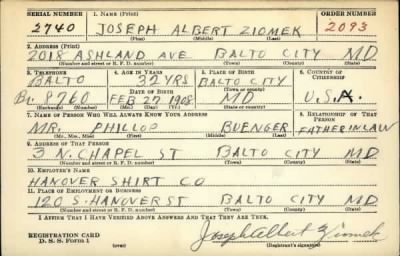 SERIAL NUMBER 1. NAME (Print) ORDER NUMBER
2740 JOSEPH ALBERT ZIOMEK 2093
(First) (Middle) (Last)
2. ADDRESS (Print)
2018 ASHLAND AVE BALTO CITY MD.
(Number and street or R. F. D. number) (Town) (County) (State)
3. TELEPHONE 4. AGE IN YEARS 5. PLACE OF BIRTH 6. COUNTRY OF CITIZENSHIP
BALTO 32 YRS BALTO CITY
DATE OF BIRTH (Town or county)
8760 FEB 27 1908 MD U.S.A.
(Exchange) (Number) (Mo.) (Day) (Yr.) (State or country)
7. NAME OF PERSON WHO WILL ALWAYS KNOW YOUR ADDRESS 8. RELATIONSHIP OF THAT PERSON
MR. PHILLOP BUENGER FATHERINLAW
(Mr., Mrs., Miss) (First) (Middle) (Last)
9. ADDRESS OF THAT PERSON
3 N. CHAPEL ST BALTO CITY MD.
(Number and street or R. F. D. number) (Town) (County) (State)
10. EMPLOYER'S NAME
HANOVER SHIRT CO
11. PLACE OF EMPLOYMENT OR BUSINESS
120 S. HANOVER ST BALTO CITY MD
(Number and street or R. F. D. number) (Town) (County) (State)
I AFFIRM THAT I HAVE VERIFIED ABOVE ANSWERS AND THAT THEY ARE TRUE.
REGISTRATION CARD
D. S. S. Form 1 Joseph Albert Ziomek
(Registrant's signature)